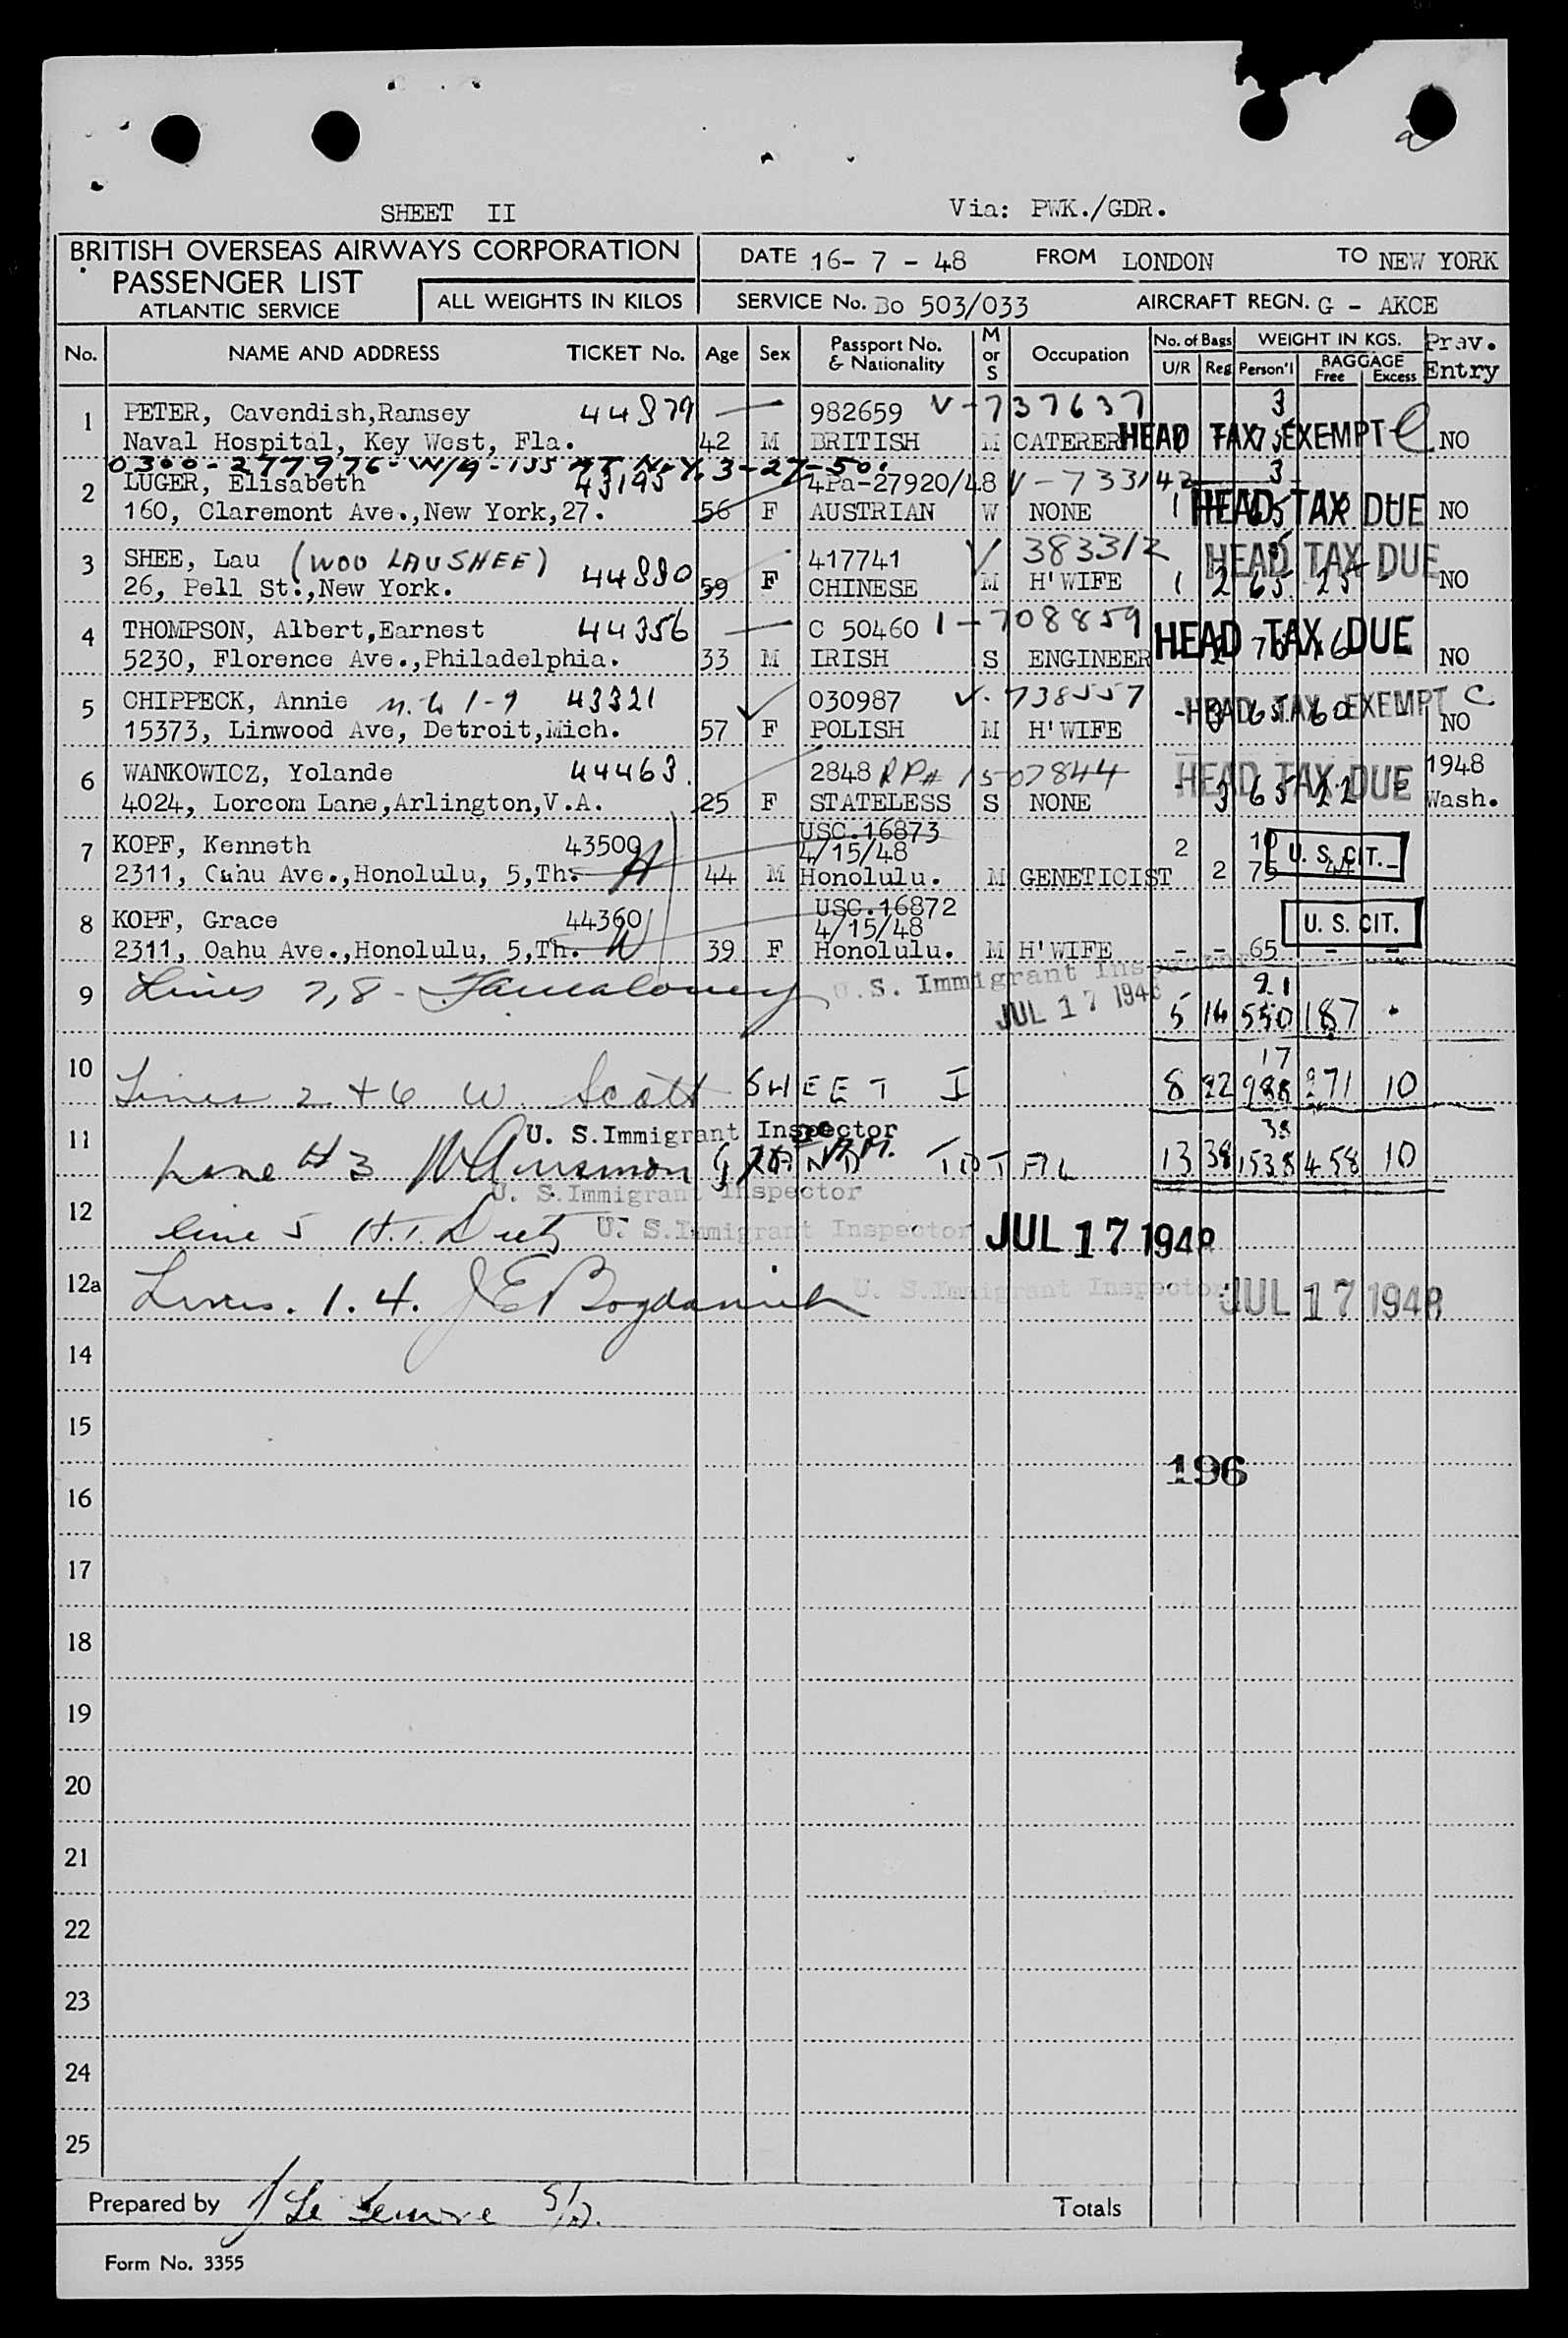 SHEET II Via: PWK./GDR.
BRITISH OVERSEAS AIRWAYS CORPORATION
PASSENGER LIST
ATLANTIC SERVICE
ALL WEIGHTS IN KILOS
DATE 16- 7 - 48 FROM LONDON TO NEW YORK
SERVICE No. Bo 503/033 AIRCRAFT REGN. G - AKCE
No. NAME AND ADDRESS TICKET No. Age Sex Passport No. & Nationality M or S Occupation No. of Bags U/R Reg WEIGHT IN KGS. Person'l BAGGAGE Free Excess Prev. Entry
1 PETER, Cavendish,Ramsey 44879 982659 V-737637 3
Naval Hospital, Key West, Fla. 42 M BRITISH M CATERER HEAD TAX EXEMPT NO
0300-277976- W/9-155 AT N.Y. 3-27-50.
2 LUGER, Elisabeth 43195 4Pa-27920/48 V-733142 3
160, Claremont Ave.,New York,27. 56 F AUSTRIAN W NONE 1 HEAD TAX DUE NO
3 SHEE, Lau (WOO LAU SHEE) 44880 417741 V 383312 HEAD TAX DUE
26, Pell St.,New York. 59 F CHINESE M H'WIFE 1 2 65 25 - NO
4 THOMPSON, Albert,Earnest 44356 C 50460 1-708859 HEAD TAX DUE
5230, Florence Ave.,Philadelphia. 33 M IRISH S ENGINEER NO
5 CHIPPECK, Annie 43321 030987 V-738557 HEAD TAX EXEMPT C
15373, Linwood Ave, Detroit,Mich. 57 F POLISH M H'WIFE NO
6 WANKOWICZ, Yolande 44463 2848 RP# 1507844 HEAD TAX DUE 1948
4024, Lorcom Lane,Arlington,V.A. 25 F STATELESS S NONE - 3 65 22 - Wash.
7 KOPF, Kenneth 43500 USC.16873 4/15/48 2 10 U. S. CIT.
2311, Oahu Ave.,Honolulu, 5,Th. 44 M Honolulu. M GENETICIST 2 75 44 -
8 KOPF, Grace 44360 USC.16872 4/15/48 U. S. CIT.
2311, Oahu Ave.,Honolulu, 5,Th. 39 F Honolulu. M H'WIFE - - 65 - -
9 Lines 7,8 - U. S. Immigrant Inspector JUL 17 1948 5 16 21 550 187 -
10 Lines 2 + 6 W. Scott SHEET I 8 22 17 988 271 10
U. S. Immigrant Inspector
11 Line # 3 GRAND TOTAL 13 38 38 1538 458 10
U. S. Immigrant Inspector
12 line 5 U. S. Immigrant Inspector JUL 17 1948
12a Lines. 1. 4. J E Bogdanich U. S. Immigrant Inspector JUL 17 1948
14
15
196
16
17
18
19
20
21
22
23
24
25
Prepared by Totals
Form No. 3355